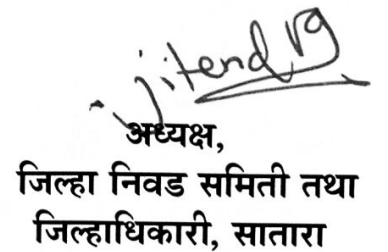 Jitend
अध्यक्ष,
जिल्हा निवड समिती तथा
जिल्हाधिकारी, सातारा